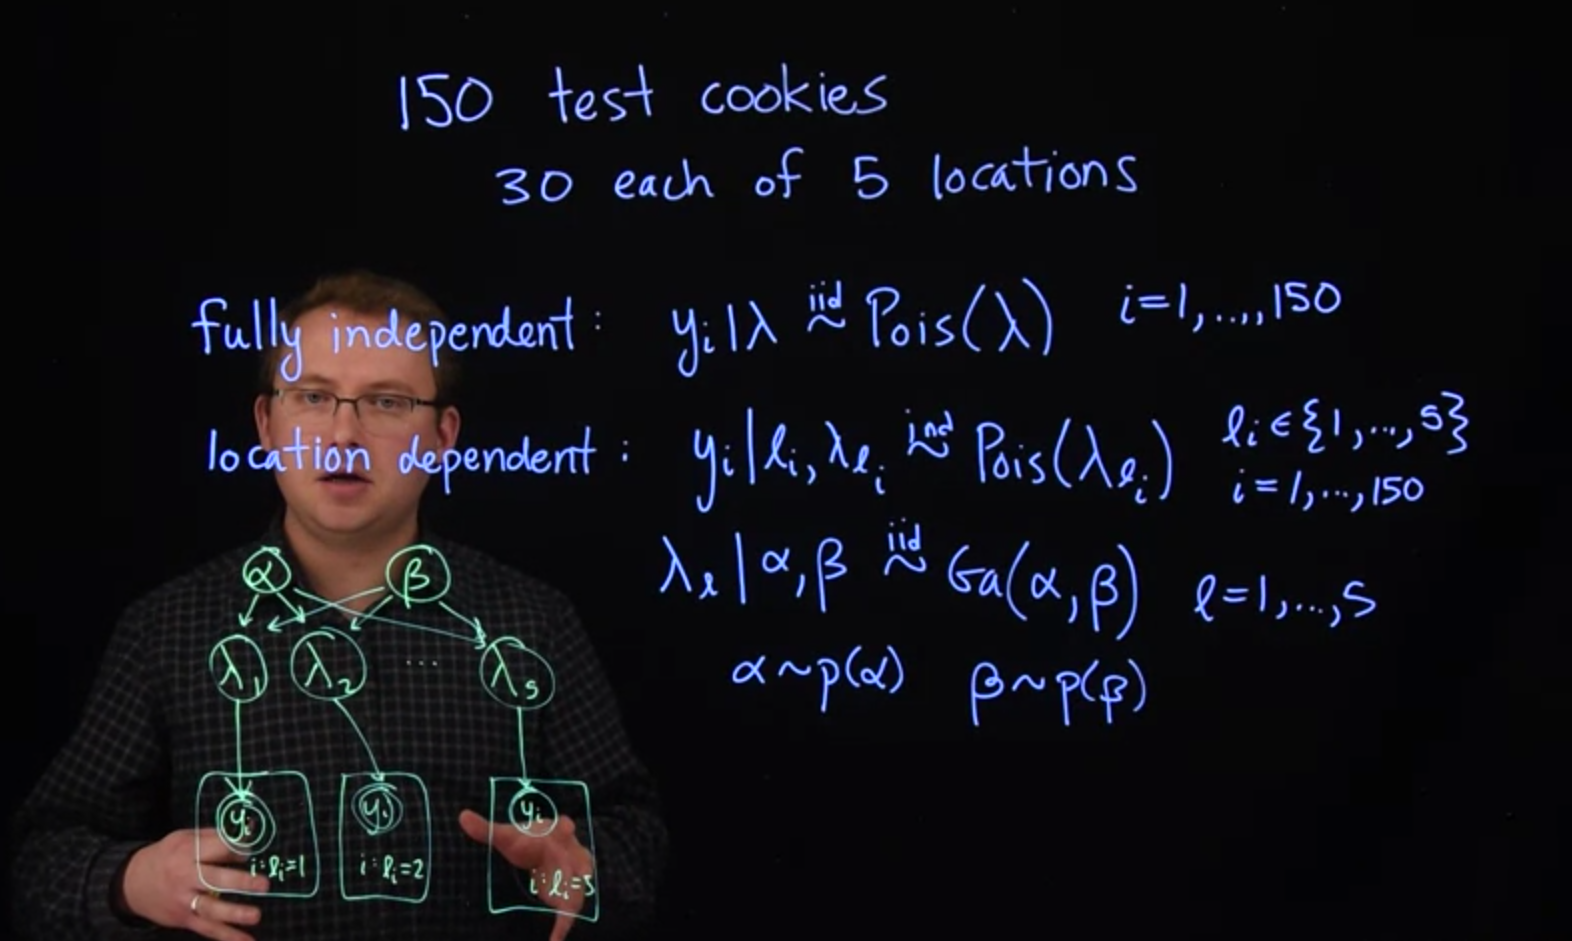 150 test cookies
30 each of 5 locations
fully independent: yᵢ|λ iid~ Pois(λ) i=1,...,150
location dependent: yᵢ|lᵢ,λ_{lᵢ} ind~ Pois(λ_{lᵢ}) lᵢ∈{1,...,5}
i=1,...,150
λ_l|α,β iid~ Ga(α,β) l=1,...,5
α~p(α) β~p(β)
α β
λ₁ λ₂ ... λ₅
yᵢ yᵢ yᵢ
i:lᵢ=1 i:lᵢ=2 i:lᵢ=5